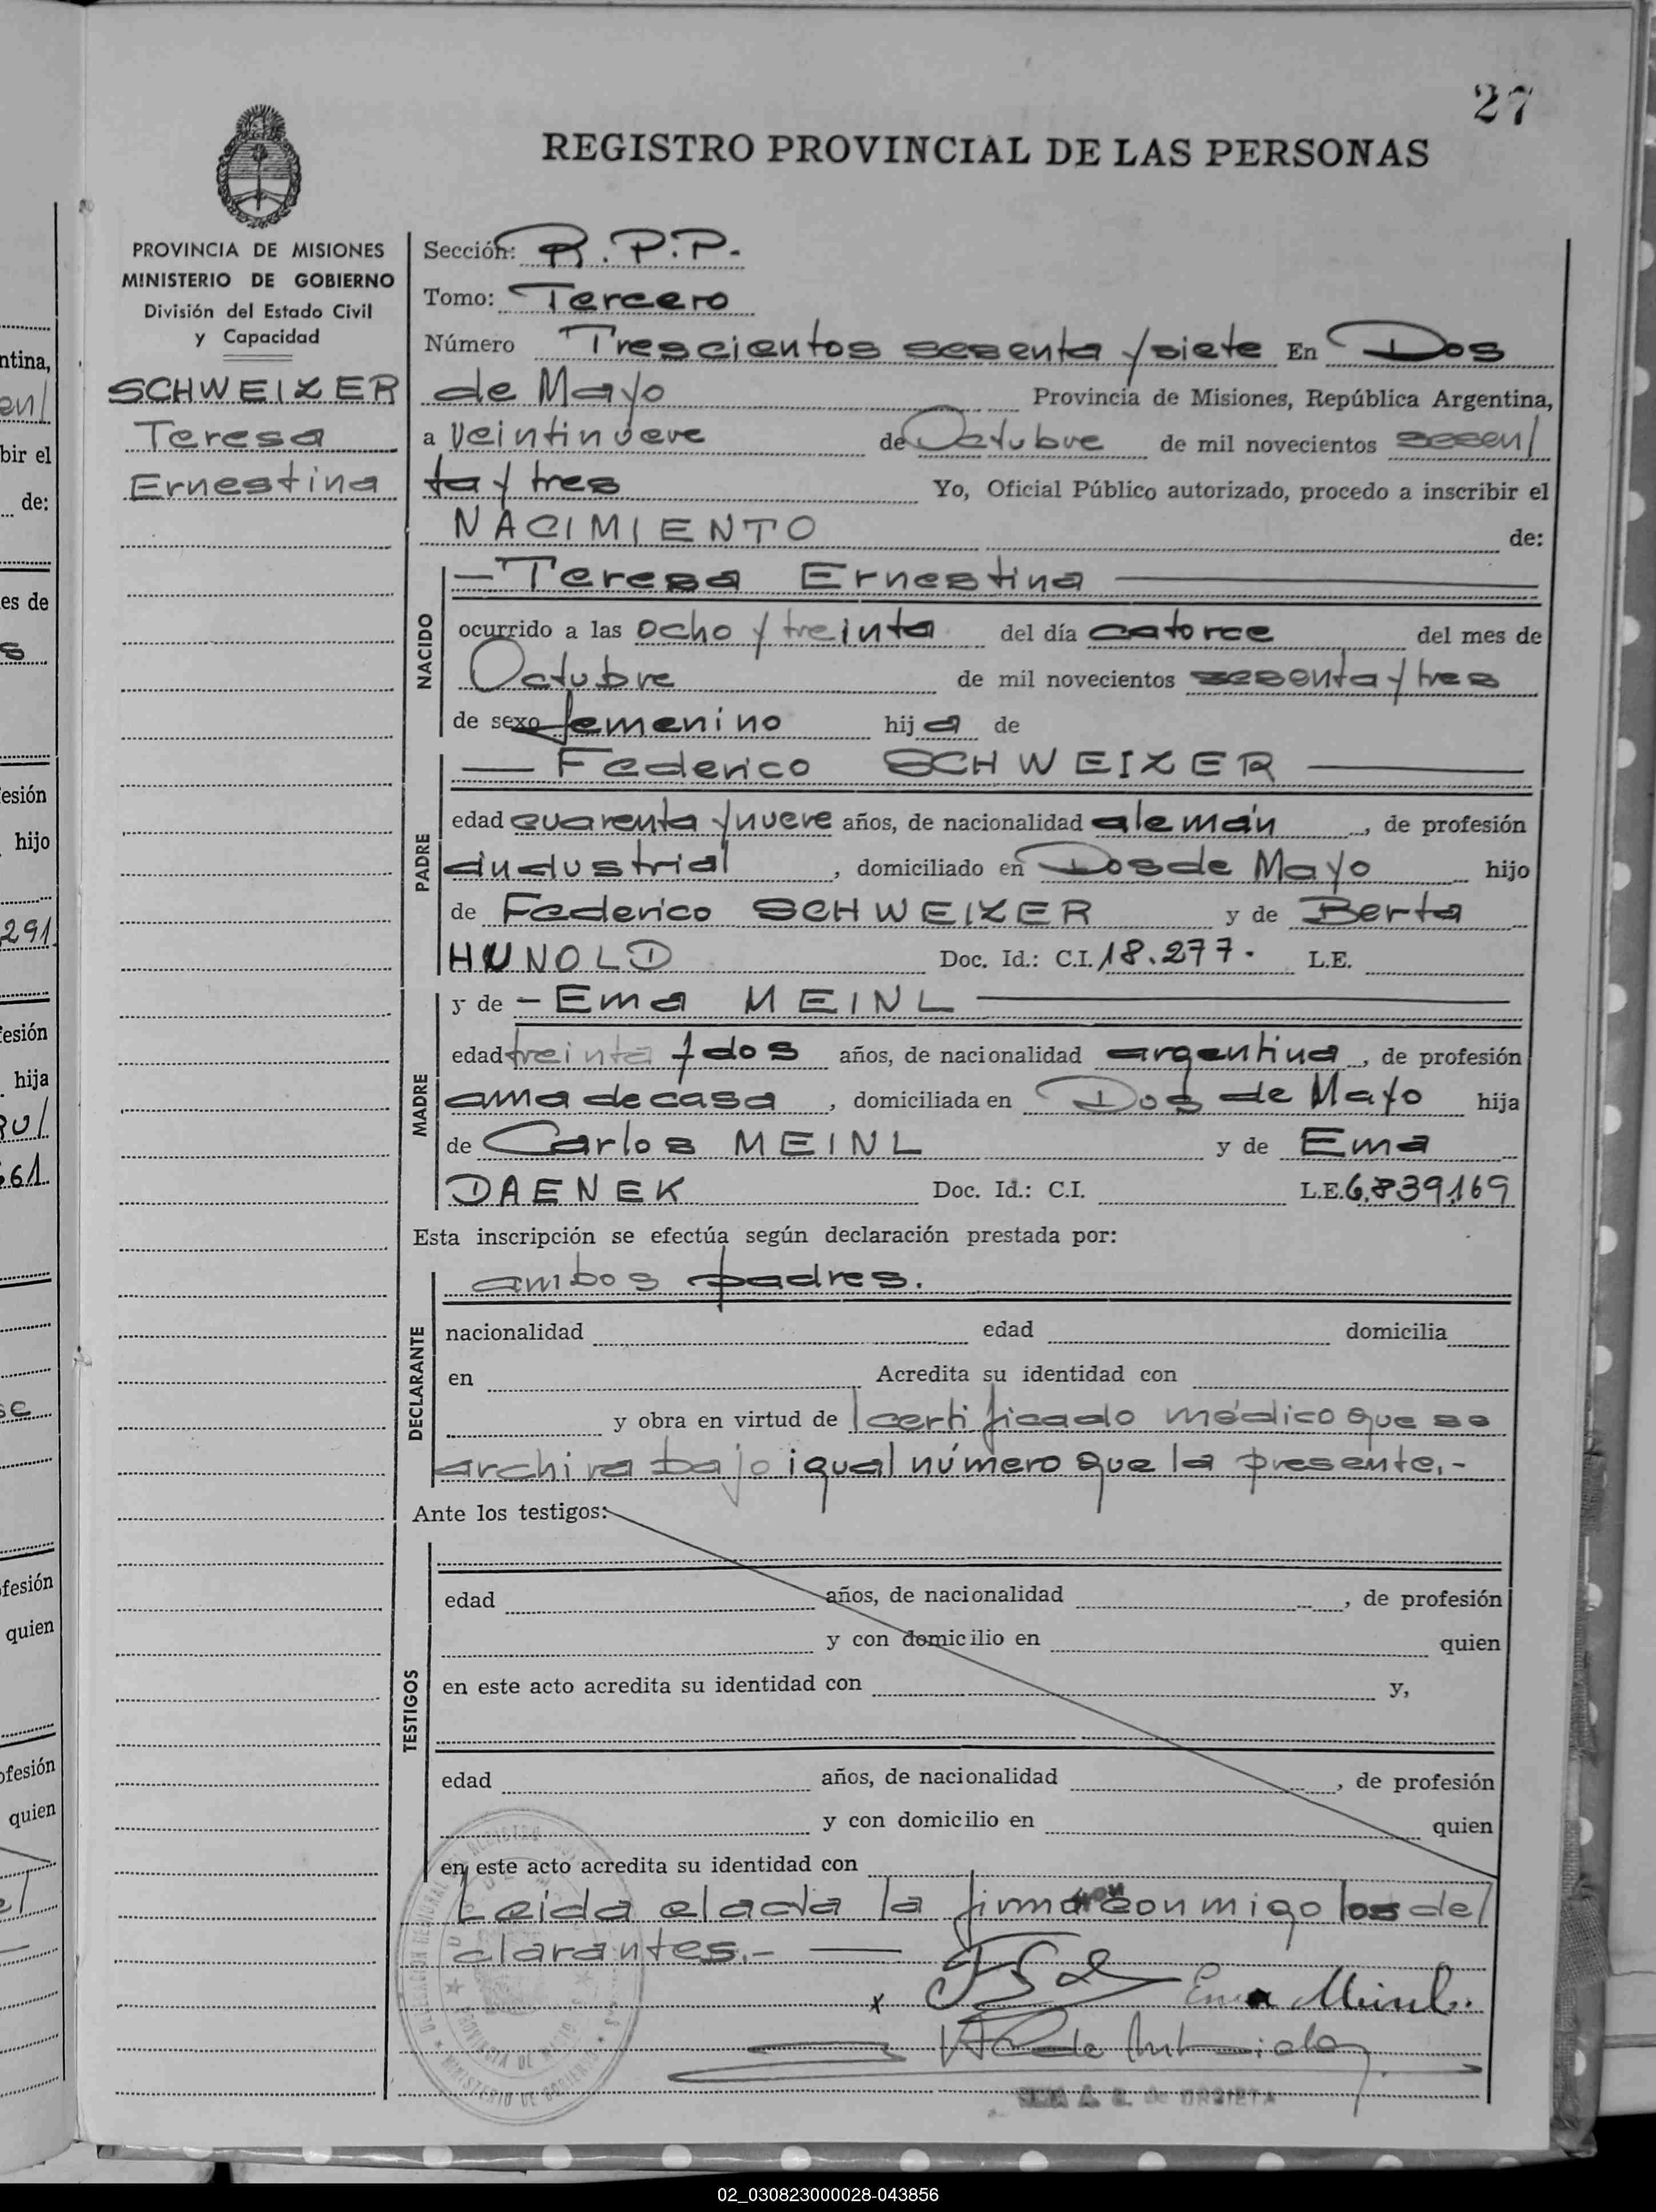 27
REGISTRO PROVINCIAL DE LAS PERSONAS
PROVINCIA DE MISIONES
MINISTERIO DE GOBIERNO
División del Estado Civil
y Capacidad
SCHWEIZER
Teresa
Ernestina
Sección: R.P.P.-
Tomo: Tercero
Número Trescientos sesenta y siete En Dos
de Mayo Provincia de Misiones, República Argentina,
a Veintinueve de Octubre de mil novecientos sesen/
ta y tres Yo, Oficial Público autorizado, procedo a inscribir el
NACIMIENTO de:
NACIDO
— Teresa Ernestina —
ocurrido a las ocho y treinta del día catorce del mes de
Octubre de mil novecientos sesenta y tres
de sexo femenino hija de
PADRE
— Federico SCHWEIZER —
edad cuarenta y nueve años, de nacionalidad alemán, de profesión
industrial, domiciliado en Dos de Mayo hijo
de Federico SCHWEIZER y de Berta
HUNOLD Doc. Id.: C.I. 18.277. L.E.
MADRE
y de - Ema MEINL —
edad treinta y dos años, de nacionalidad argentina, de profesión
ama de casa, domiciliada en Dos de Mayo hija
de Carlos MEINL y de Ema
DAENEK Doc. Id.: C.I. L.E. 6.839.169
Esta inscripción se efectúa según declaración prestada por:
DECLARANTE
ambos padres.
nacionalidad edad domicilia
en Acredita su identidad con
y obra en virtud de certificado médico que se
archiva bajo igual número que la presente.-
Ante los testigos:
TESTIGOS
edad años, de nacionalidad , de profesión
y con domicilio en quien
en este acto acredita su identidad con y,
edad años, de nacionalidad , de profesión
y con domicilio en quien
en este acto acredita su identidad con
Leida el acta la firman conmigo los de/
clarantes.- —
x Ema Meinl
02_030823000028-043856